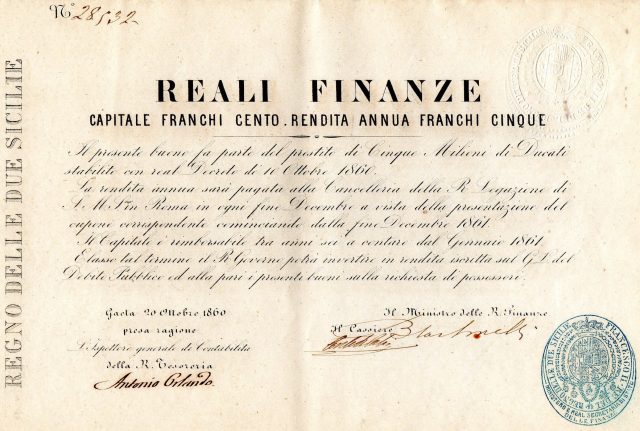 Nº 28532
REGNO DELLE DUE SICILIE
REALI FINANZE
CAPITALE FRANCHI CENTO. RENDITA ANNUA FRANCHI CINQUE
Il presente buono fa parte del prestito di Cinque Milioni di Ducati
stabilito con real Decreto di 10 Ottobre 1860.
La rendita annua sarà pagata alla Cancelleria della R. Legazione di
S. M. in Roma in ogni fine Decembre a vista della presentazione del
cupone corrispondente cominciando dalla fine Decembre 1861.
Il Capitale è rimborsabile tra anni sei a contare dal Gennaio 1861
Elasso tal termine il R. Governo potrà invertire in rendita iscritta sul G. L. del
Debito Pubblico ed alla pari i presenti buoni sulla richiesta di possessori.
Gaeta 20 Ottobre 1860
presa ragione
L'Ispettore generale di Contabilità
della R. Tesoreria
Antonio Orlando
Il Ministro delle R. Finanze
Il Cassiere
DELLE DUE SICILIE FRANCESCO II
DELLE FINANZE